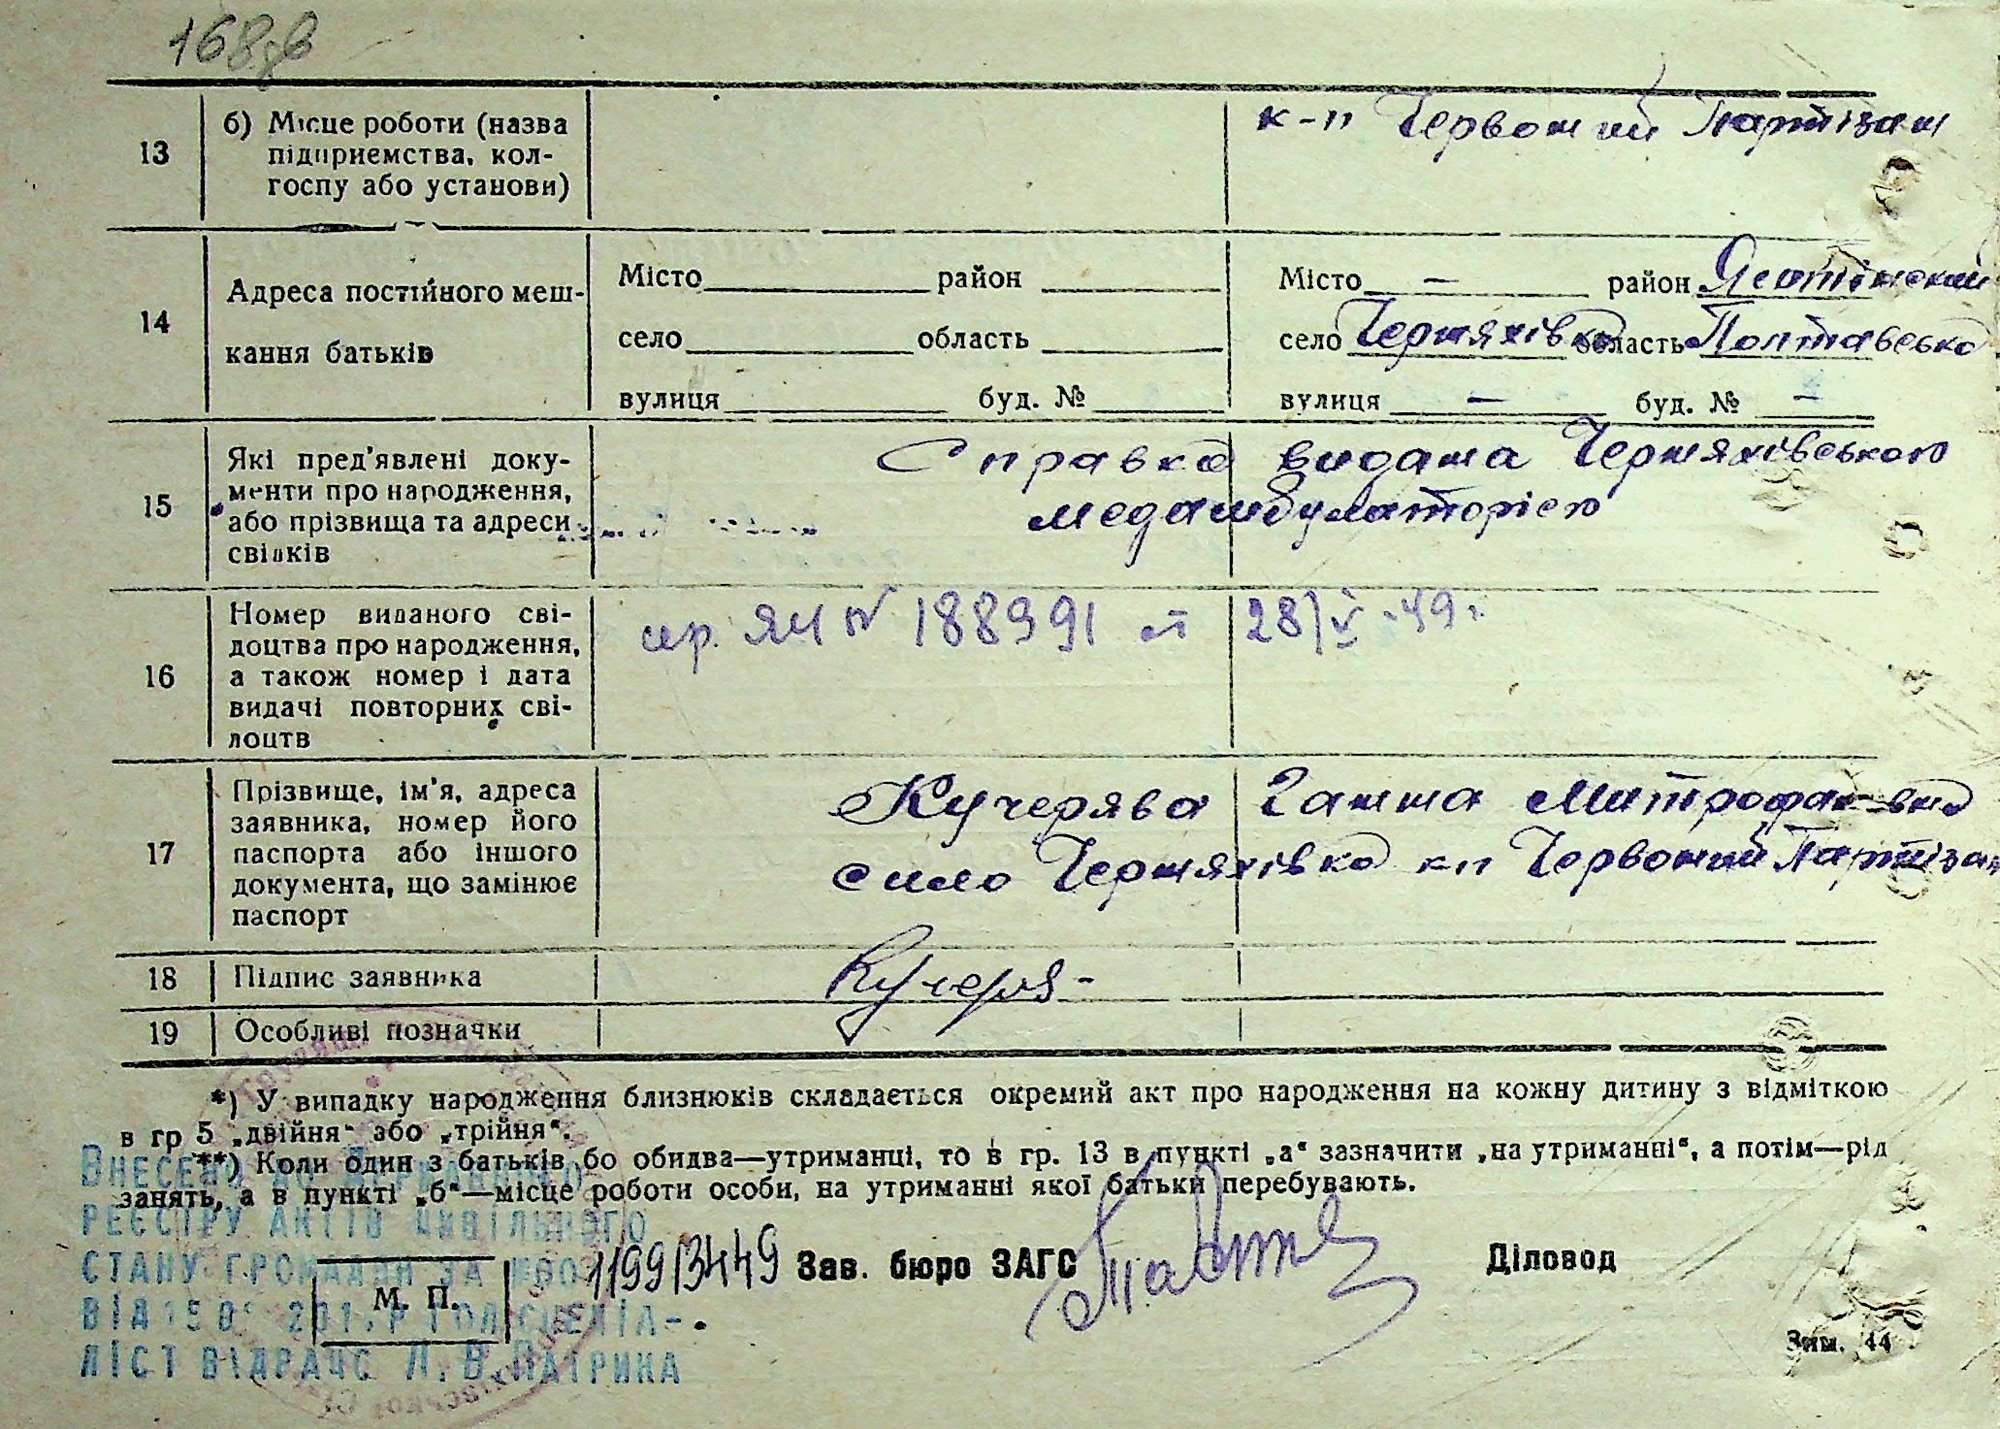 168зв
13 б) Місце роботи (назва підприємства, колгоспу або установи) к-п Червоний Партізан
14 Адреса постійного мешкання батьків
Місто район Місто — район Яготінский
село область село Черняхівка область Полтавська
вулиця буд. № вулиця — буд. № —
15 Які пред'явлені документи про народження, або прізвища та адреси свідків
Справка видана Черняхівською
медамбулаторією
16 Номер виданого свідоцтва про народження, а також номер і дата видачі повторних свідоцтв
сер. ЯЧ № 188991 от 28/V-49г.
17 Прізвище, ім'я, адреса заявника, номер його паспорта або іншого документа, що замінює паспорт
Кучерява Ганна Митрофановна
село Черняхівка кп Червоний Партізан
18 Підпис заявника Кучеря-
19 Особливі позначки
*) У випадку народження близнюків складається окремий акт про народження на кожну дитину з відміткою
в гр 5 „двійня“ або „трійня“.
**) Коли один з батьків бо обидва—утриманці, то в гр. 13 в пункті „а“ зазначити „на утриманні“, а потім—рід
занять, а в пункті „б“—місце роботи особи, на утриманні якої батьки перебувають.
Внесено до Державного
реєстру актів цивільного
стану громадян за №00119913449 Зав. бюро ЗАГС Діловод
М. П.
від гол спеціа-
ліст відрацс Л. В. Патрика
Зам. 44